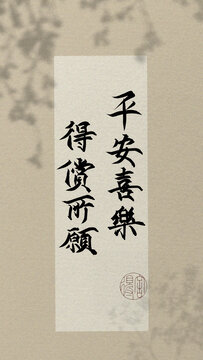 平安喜樂
得償所願